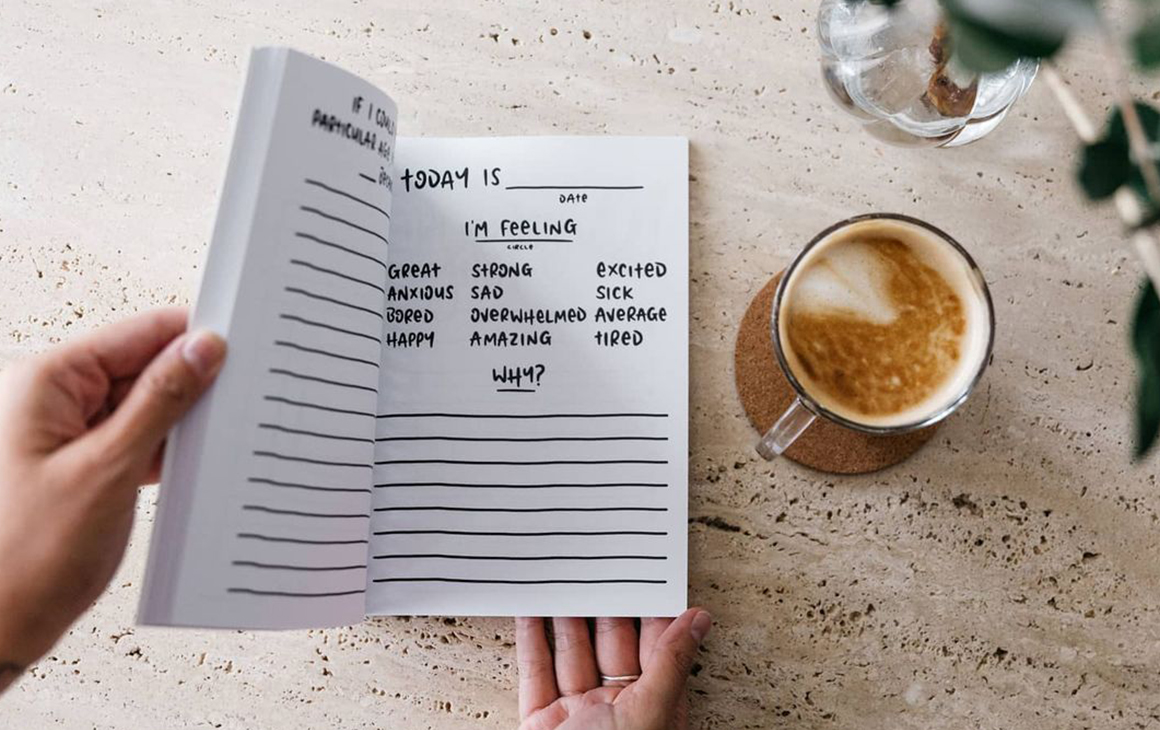 IF I COUL
PARTICULAR AGE
TODAY IS
DATE
I'M FEELING
CIRCLE
GREAT STRONG EXCITED
ANXIOUS SAD SICK
BORED OVERWHELMED AVERAGE
HAPPY AMAZING TIRED
WHY?